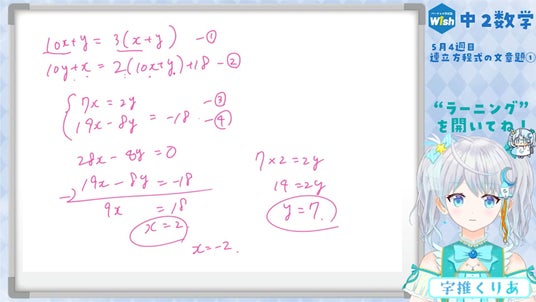 10x+y = 3(x+y) —①
10y+x = 2(10x+y)+18 —②
7x = 2y —③
19x-8y = -18 —④
28x-8y = 0
-) 19x-8y = -18
9x = 18
x = 2
7×2 = 2y
14 = 2y
y = 7
x = -2
バーチャル学習塾
Wish
中2数学
5月4週目
連立方程式の文章題①
“ラーニング”
を開いてね!
字推くりあ